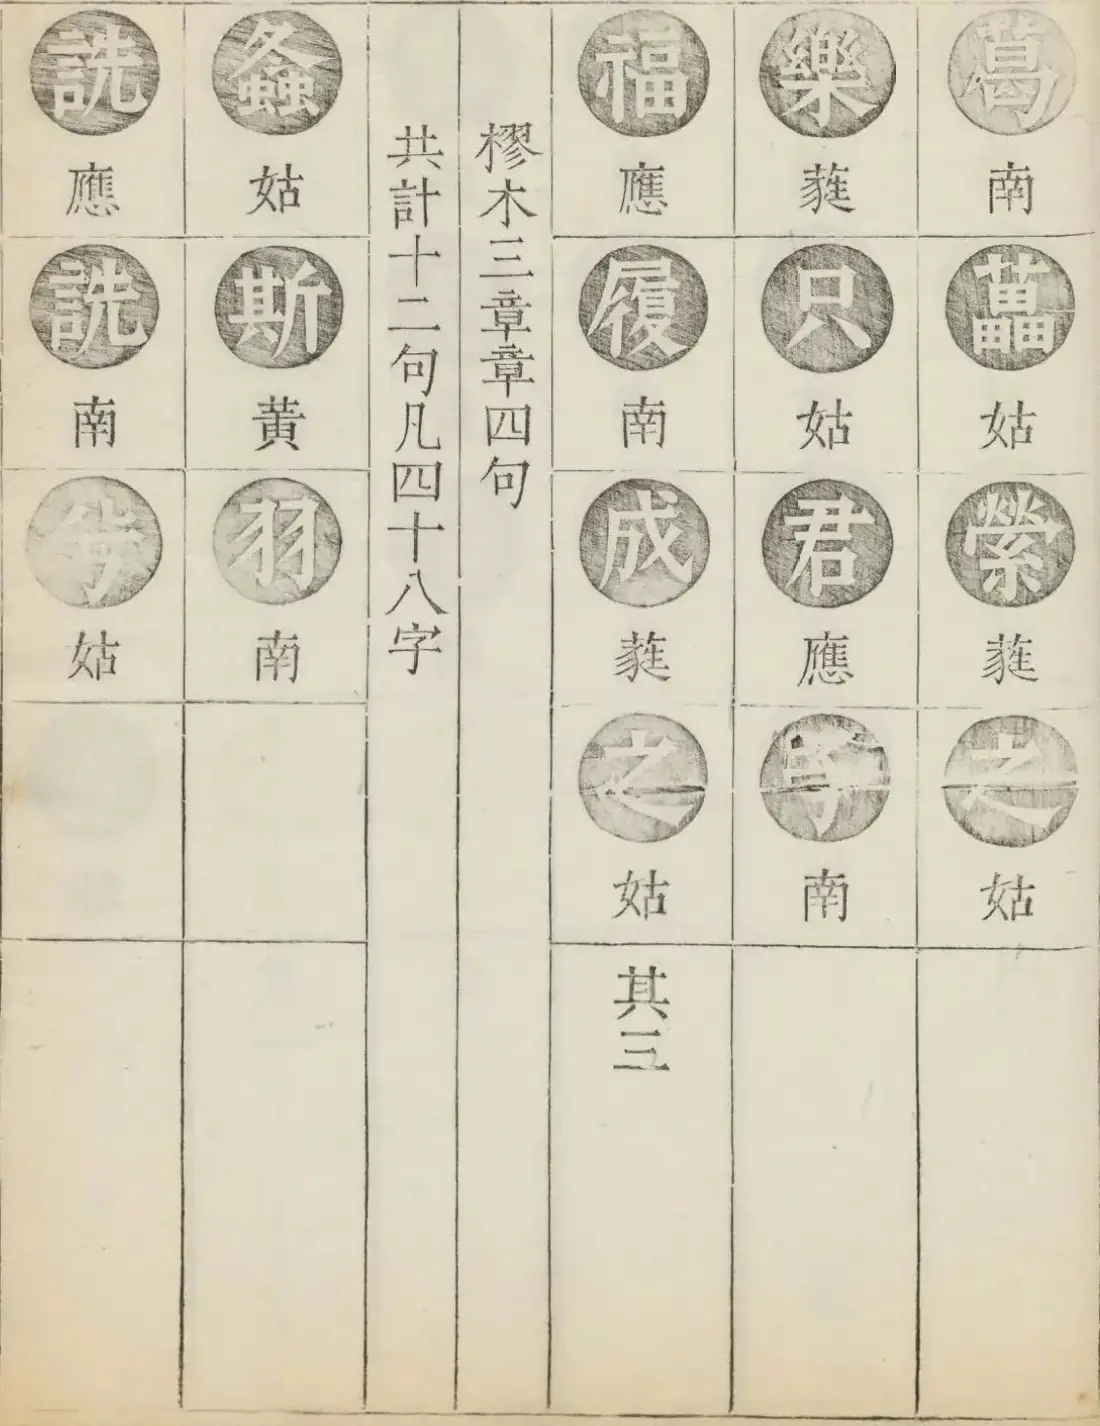 葛南藟姑縈蕤之姑
樂蕤只姑君應子南
福應履南成蕤之姑其三
樛木三章章四句
共計十二句凡四十八字
螽姑斯黃羽南
詵應詵南兮姑